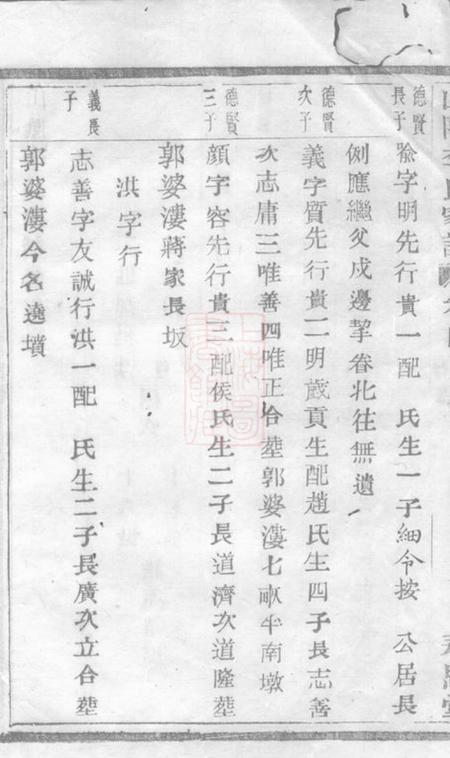 德賢長子
瑜字明先行貴一配　氏生一子細令按　公居長
例應繼父戍邊挈眷北往無遺
德賢次子
義字質先行貴二明歲貢生配趙氏生四子長志善
次志庸三唯善四唯正合塟郭婆漊七畝半南墩
德賢三子
顏字容先行貴三配侯氏生二子長道濟次道隆塟
郭婆漊蔣家長坂
洪字行
義長子
志善字友誠行洪一配　氏生二子長廣次立合塟
郭婆漊今名遶墳